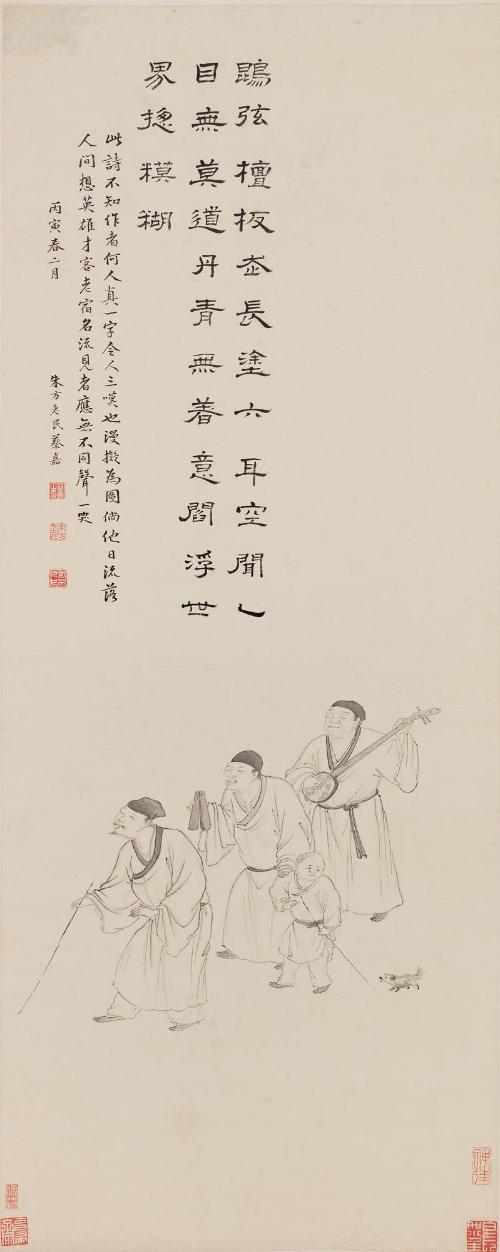 鵾弦檀板走長塗六耳空聞一
目無莫道丹青無著意閻浮世
界揔糢糊
此詩不知作者何人真一字令人三嘆也漫擬為圖倘他日流落
人間想英雄才客老宿名流見者應無不同聲一哭
丙寅春二月
朱方老民蔡嘉